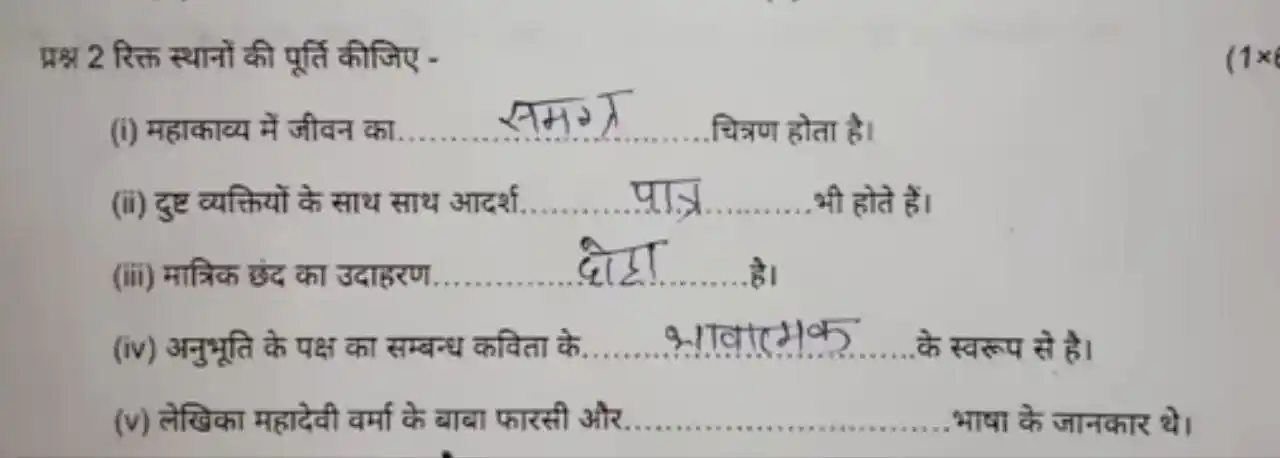 प्रश्न 2 रिक्त स्थानों की पूर्ति कीजिए - (1×6
(i) महाकाव्य में जीवन का.......समग्र.......चित्रण होता है।
(ii) दुष्ट व्यक्तियों के साथ साथ आदर्श.......पात्र.......भी होते हैं।
(iii) मात्रिक छंद का उदाहरण.......दोहा.......है।
(iv) अनुभूति के पक्ष का सम्बन्ध कविता के.......भावात्मक.......के स्वरूप से है।
(v) लेखिका महादेवी वर्मा के बाबा फारसी और..............................भाषा के जानकार थे।